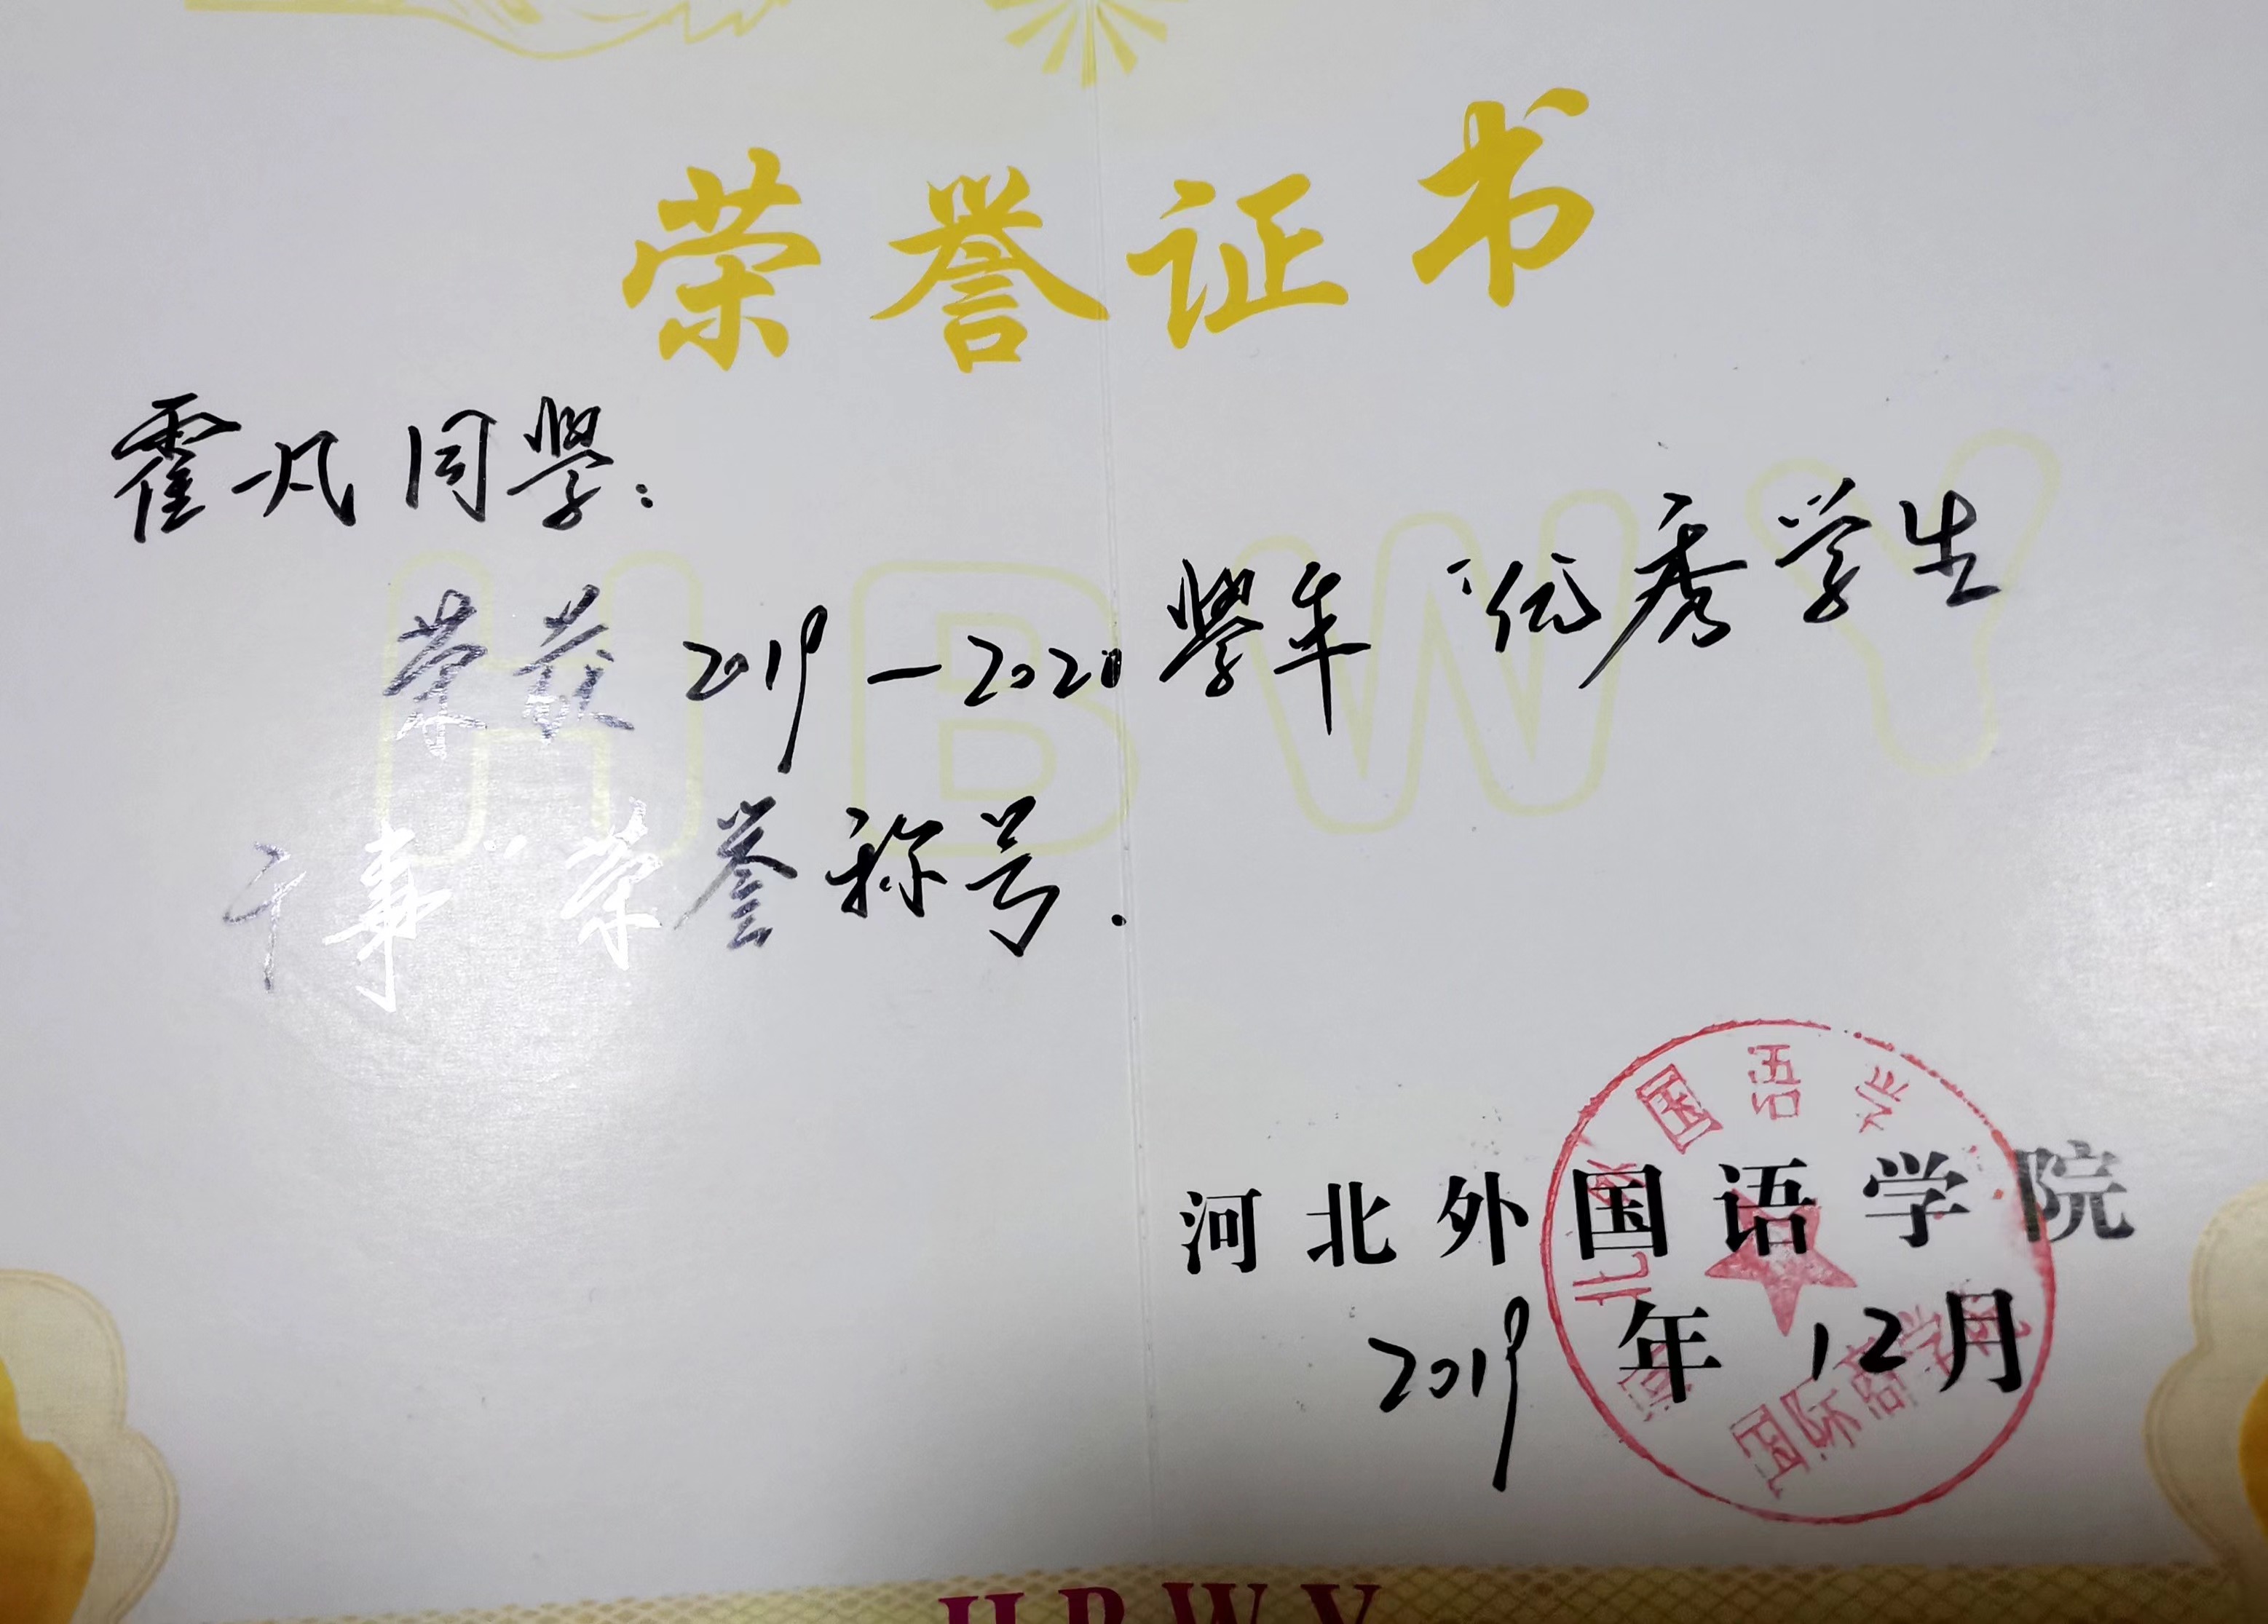 荣誉证书
霍凡同學：
荣获2019—2020學年“优秀学生
干事”荣誉称号.
河北外国语学院
2019年12月
河北外国语学
国际商学院
HBWY
HBWY